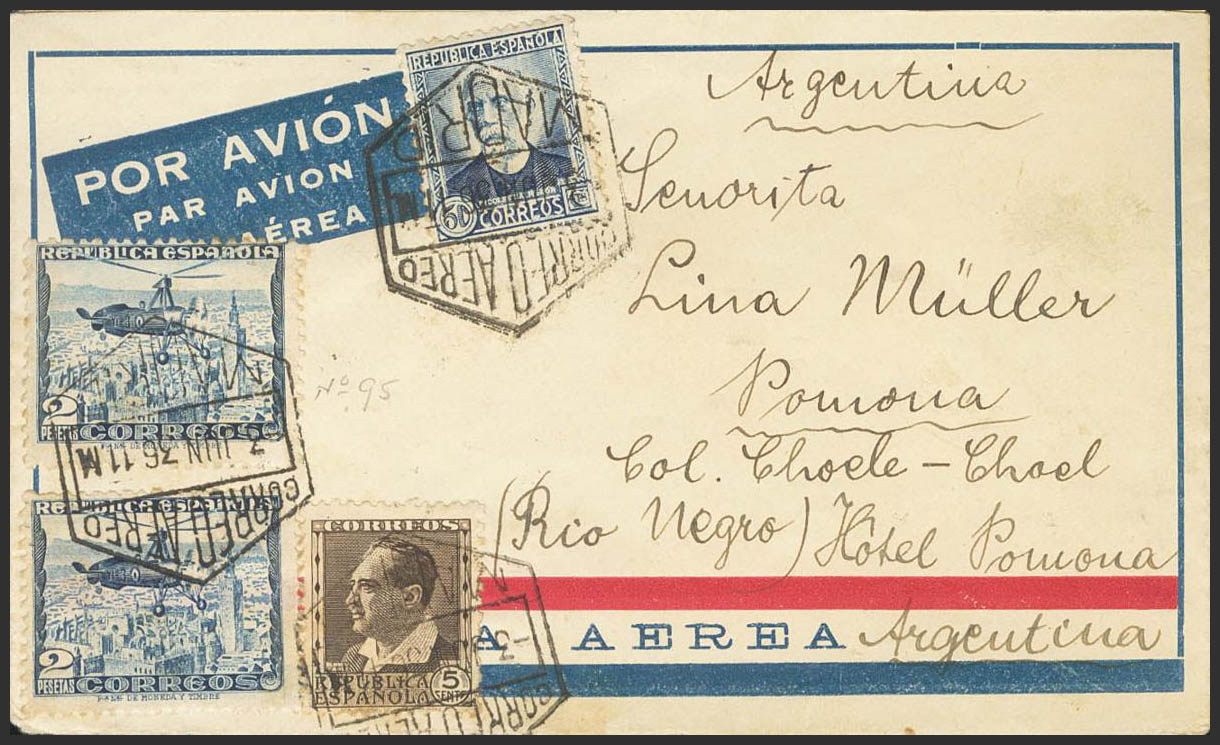 Argentina
Señorita
Lina Müller
Pomona
Col. Choele-Choel
(Rio Negro) Hôtel Pomona
Argentina
POR AVIÓN
PAR AVION
AÉREA
REPUBLICA ESPAÑOLA
60 CORREOS Cts
MADRID
CORREO AEREO
REPUBLICA ESPAÑOLA
2
PESETAS CORREOS
3 JUN 36 11 M
CORREO AEREO
Nº 95
REPUBLICA ESPAÑOLA
2
PESETAS CORREOS
FCA NAL DE MONEDA Y TIMBRE
CORREOS
REPUBLICA 5
ESPAÑOLA CENTS
CORREO AEREO
A AEREA